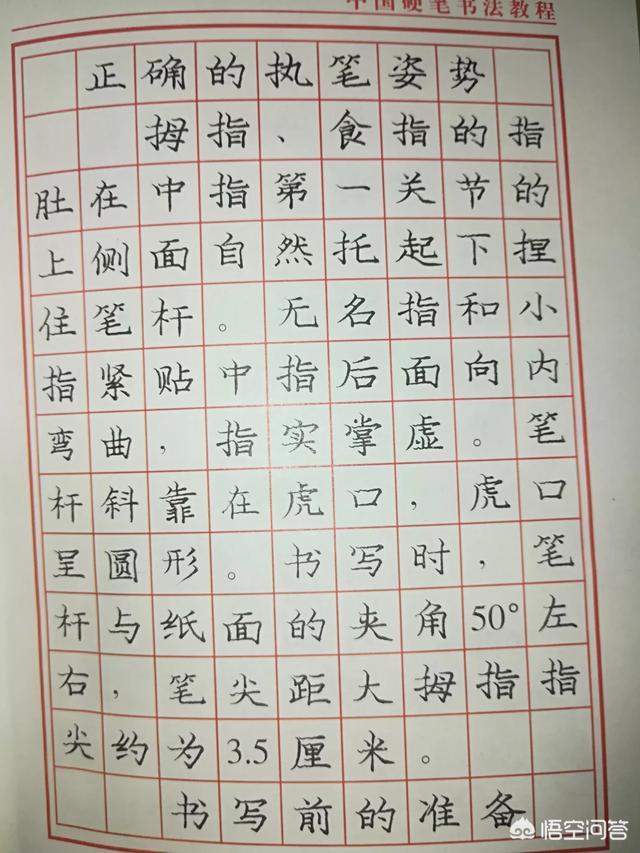 中国硬笔书法教程
正确的执笔姿势
拇指、食指的指
肚在中指第一关节的
上侧面自然托起下捏
住笔杆。无名指和小
指紧贴中指后面向内
弯曲，指实掌虚。笔
杆斜靠在虎口，虎口
呈圆形。书写时，笔
杆与纸面的夹角50°左
右，笔尖距大拇指指
尖约为3.5厘米。
书写前的准备
悟空问答